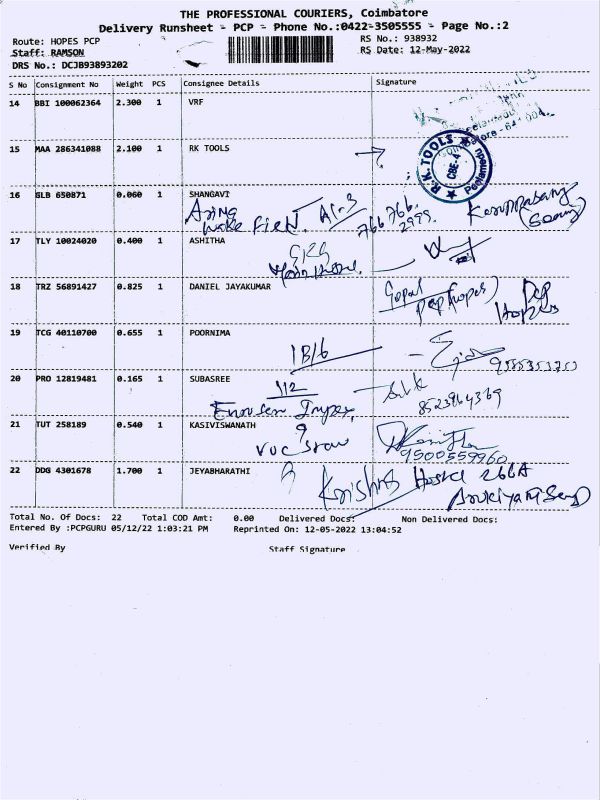 THE PROFESSIONAL COURIERS, Coimbatore
Delivery Runsheet - PCP - Phone No.:0422-3505555 - Page No.:2
Route: HOPES PCP
RS No.: 938932
Staff: RAMSON
RS Date: 12-May-2022
DRS No.: DCJB93893202
S No Consignment No Weight PCS Consignee Details Signature
14 BBI 100062364 2.300 1 VRF
15 MAA 286341088 2.100 1 RK TOOLS
R.K.TOOLS
CBE-4
16 GLB 650871 0.060 1 SHANGAVI
wake Field. A1-3 766 766.
2995.
17 TLY 10024020 0.400 1 ASHITHA
18 TRZ 56891427 0.825 1 DANIEL JAYAKUMAR
Gopal
pcp(hopes)
PCP
Hopes
19 TCG 40110700 0.655 1 POORNIMA
1B/6
20 PRO 12819481 0.165 1 SUBASREE
112
8523964369
21 TUT 258189 0.540 1 KASIVISWANATH
9500559960
22 DDG 4301678 1.700 1 JEYABHARATHI
Krishna Hostel 266A
Total No. Of Docs: 22 Total COD Amt: 0.00 Delivered Docs: Non Delivered Docs:
Entered By :PCPGURU 05/12/22 1:03:21 PM Reprinted On: 12-05-2022 13:04:52
Verified By Staff Signature